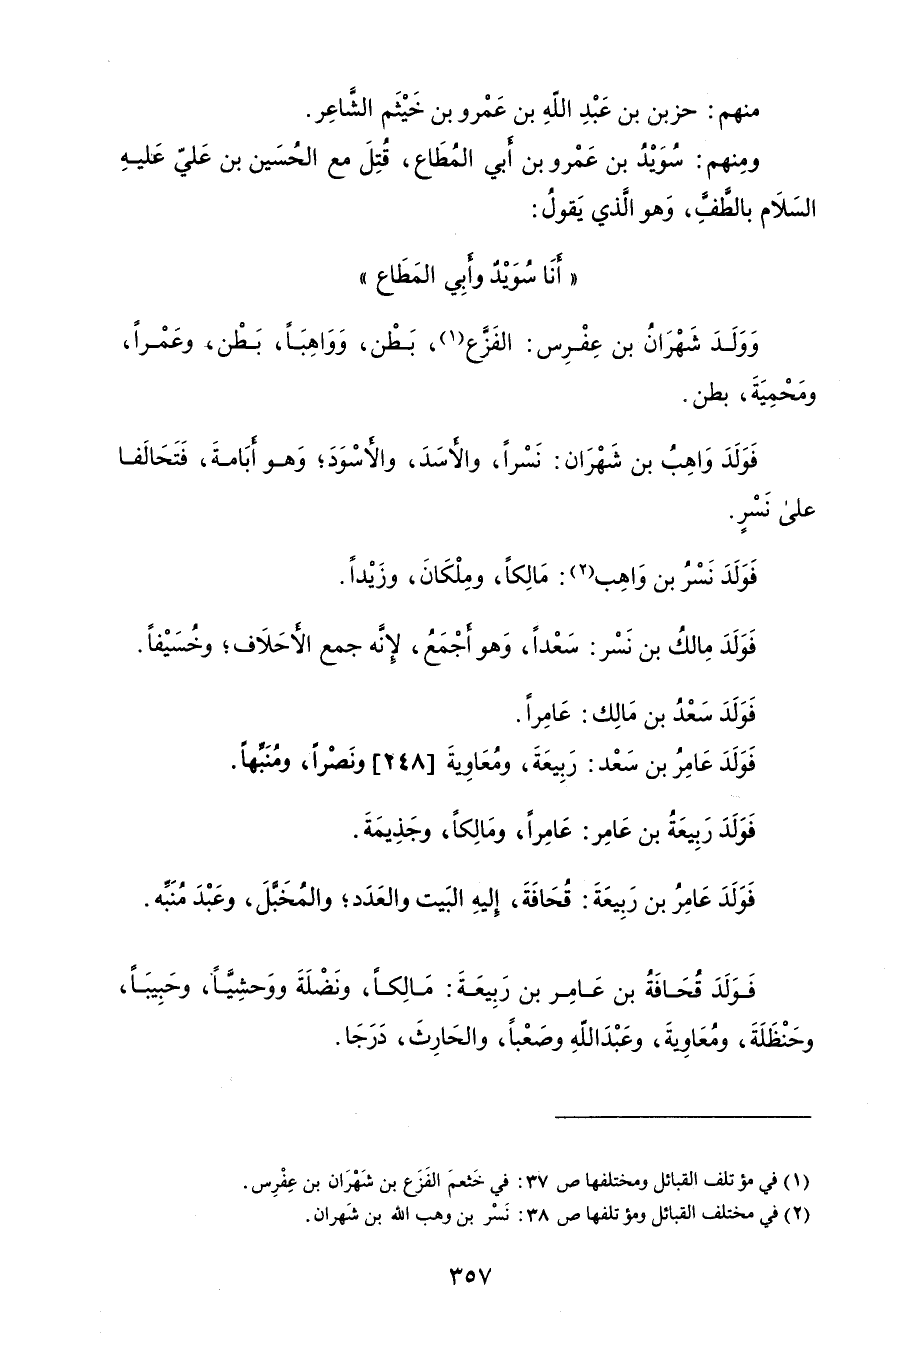 منهم : حزبن بن عَبْدِ اللّهِ بن عَمْرو بن خَيْثَم الشَّاعِر .
ومِنهم : سُوَيْدُ بن عَمْرو بن أَبي المُطَاع ، قُتِلَ مع الحُسَين بن عَليّ عَليـهِ
السَلَام بالطَّفِّ ، وَهو الَّذي يَقولُ :
« أَنَا سُوَيْدٌ وأَبِي المَطَاع »
وَوَلَـدَ شَهْرَانُ بن عِفْـرِس : الفَزَّع (١) ، بَـطْن ، وَوَاهِبَـاً ، بَـطْن ، وعَمْـراً ،
ومَحْمِيَةَ ، بطن .
فَوَلَدَ وَاهِبُ بن شَهْرَان : نَسْراً ، والأَسَدَ ، والأَسْوَدَ ؛ وَهـو أَبَامـةَ ، فَتَحَالَفـا
علىٰ نَسْرٍ .
فَوَلَدَ نَسْرُ بن وَاهِب (٢) : مَالِكاً ، ومِلْكَانَ ، وزَيْداً .
فَوَلَدَ مِالكُ بن نَسْر : سَعْداً ، وَهو أَجْمَعُ ، لِإنَّه جمع الأَحَلَاف ؛ وخُسَيْفاً .
فَوَلَدَ سَعْدُ بن مَالِك : عَامِراً .
فَوَلَدَ عَامِرُ بن سَعْد : رَبِيعَةَ ، ومُعَاوِيةَ [٢٤٨] ونَصْراً ، ومُنَبِّهاً .
فَوَلَدَ رَبِيعَةُ بن عَامِر : عَامِراً ، ومَالِكاً ، وجَذِيمَةَ .
فَوَلَدَ عَامِرُ بن رَبِيعَةَ : قُحَافَةَ ، إِليهِ البَيت والعَدَد ؛ والمُخَبَّلَ ، وعَبْدَ مُنَبِّه .
فَـوَلَدَ قُحَـافَةُ بن عَـامِـر بن رَبِيعَـةَ : مَـالِكـاً ، ونَضْلَةَ ووَحشِيَّـاً ، وحَبِيبَـاً ،
وحَنْظَلَةَ ، ومُعَاوِيةَ ، وعَبْدَاللّهِ وصَعْباً ، والحَارِثَ ، دَرَجَا .
(١) في مؤتلف القبائل ومختلفها ص ٣٧ : في خَثعمَ الفَزَع بن شَهْرَان بن عِفْرِس .
(٢) في مختلف القبائل ومؤتلفها ص ٣٨ : نَسْر بن وهب الله بن شَهران .
٣٥٧